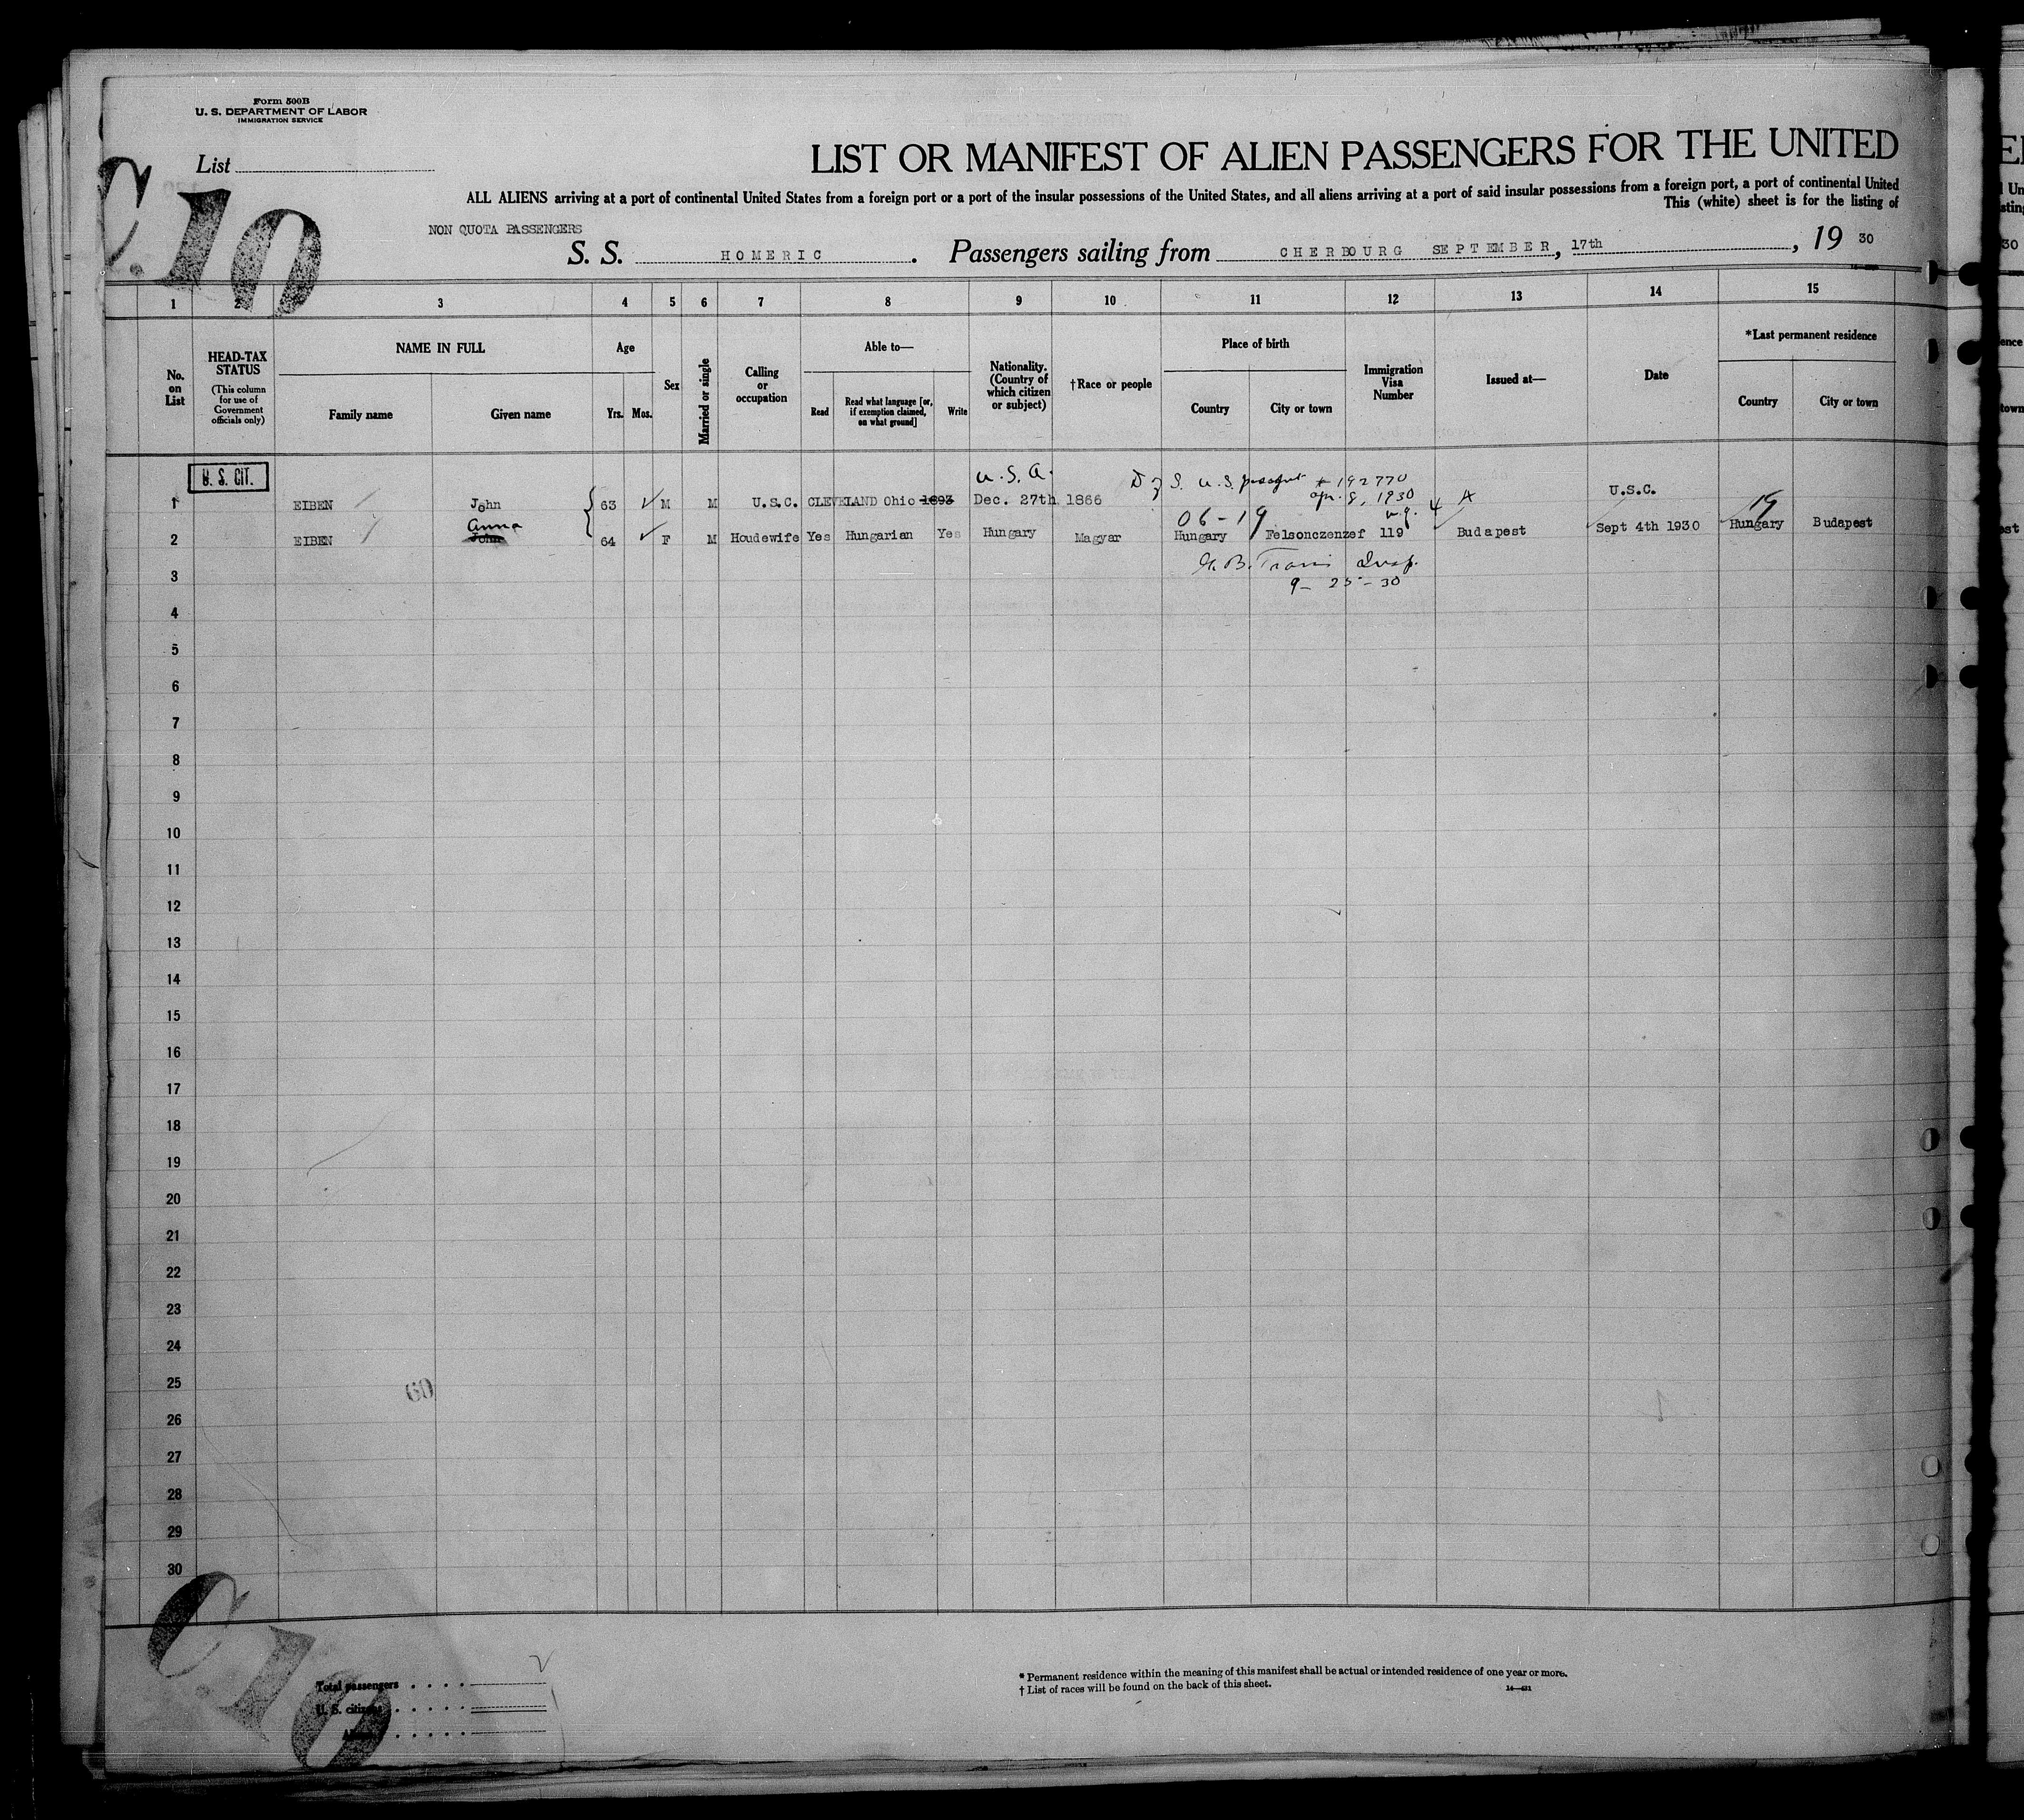 Form 500B
U. S. DEPARTMENT OF LABOR
IMMIGRATION SERVICE
List
C. 10
LIST OR MANIFEST OF ALIEN PASSENGERS FOR THE UNITED
ALL ALIENS arriving at a port of continental United States from a foreign port or a port of the insular possessions of the United States, and all aliens arriving at a port of said insular possessions from a foreign port, a port of continental United
This (white) sheet is for the listing of
NON QUOTA PASSENGERS
S. S. HOMERIC. Passengers sailing from CHERBOURG SEPTEMBER, 17th, 19 30
1 2 3 4 5 6 7 8 9 10 11 12 13 14 15
No. on List
HEAD-TAX STATUS (This column for use of Government officials only)
NAME IN FULL
Family name Given name
Age
Yrs. Mos.
Sex
Married or single
Calling or occupation
Able to—
Read Read what language [or, if exemption claimed, on what ground] Write
Nationality. (Country of which citizen or subject)
†Race or people
Place of birth
Country City or town
Immigration Visa Number
Issued at—
Date
*Last permanent residence
Country City or town
U. S. CIT. U.S.A. S. U.S. passport # 192770 U.S.C.
1 EIBEN John 63 M M U.S.C. CLEVELAND Ohio 1893 Dec. 27th 1866 apr. 8, 1930
Anna 06-19 19
2 EIBEN John 64 F M Houdewife Yes Hungarian Yes Hungary Magyar Hungary Felsonczenzef 119 Budapest Sept 4th 1930 Hungary Budapest
3
9-25-30
4
5
6
7
8
9
10
11
12
13
14
15
16
17
18
19
20
21
22
23
24
25
60
26
27
28
29
30
C. 10
Total passengers
U. S. citizens
Aliens
* Permanent residence within the meaning of this manifest shall be actual or intended residence of one year or more.
† List of races will be found on the back of this sheet.